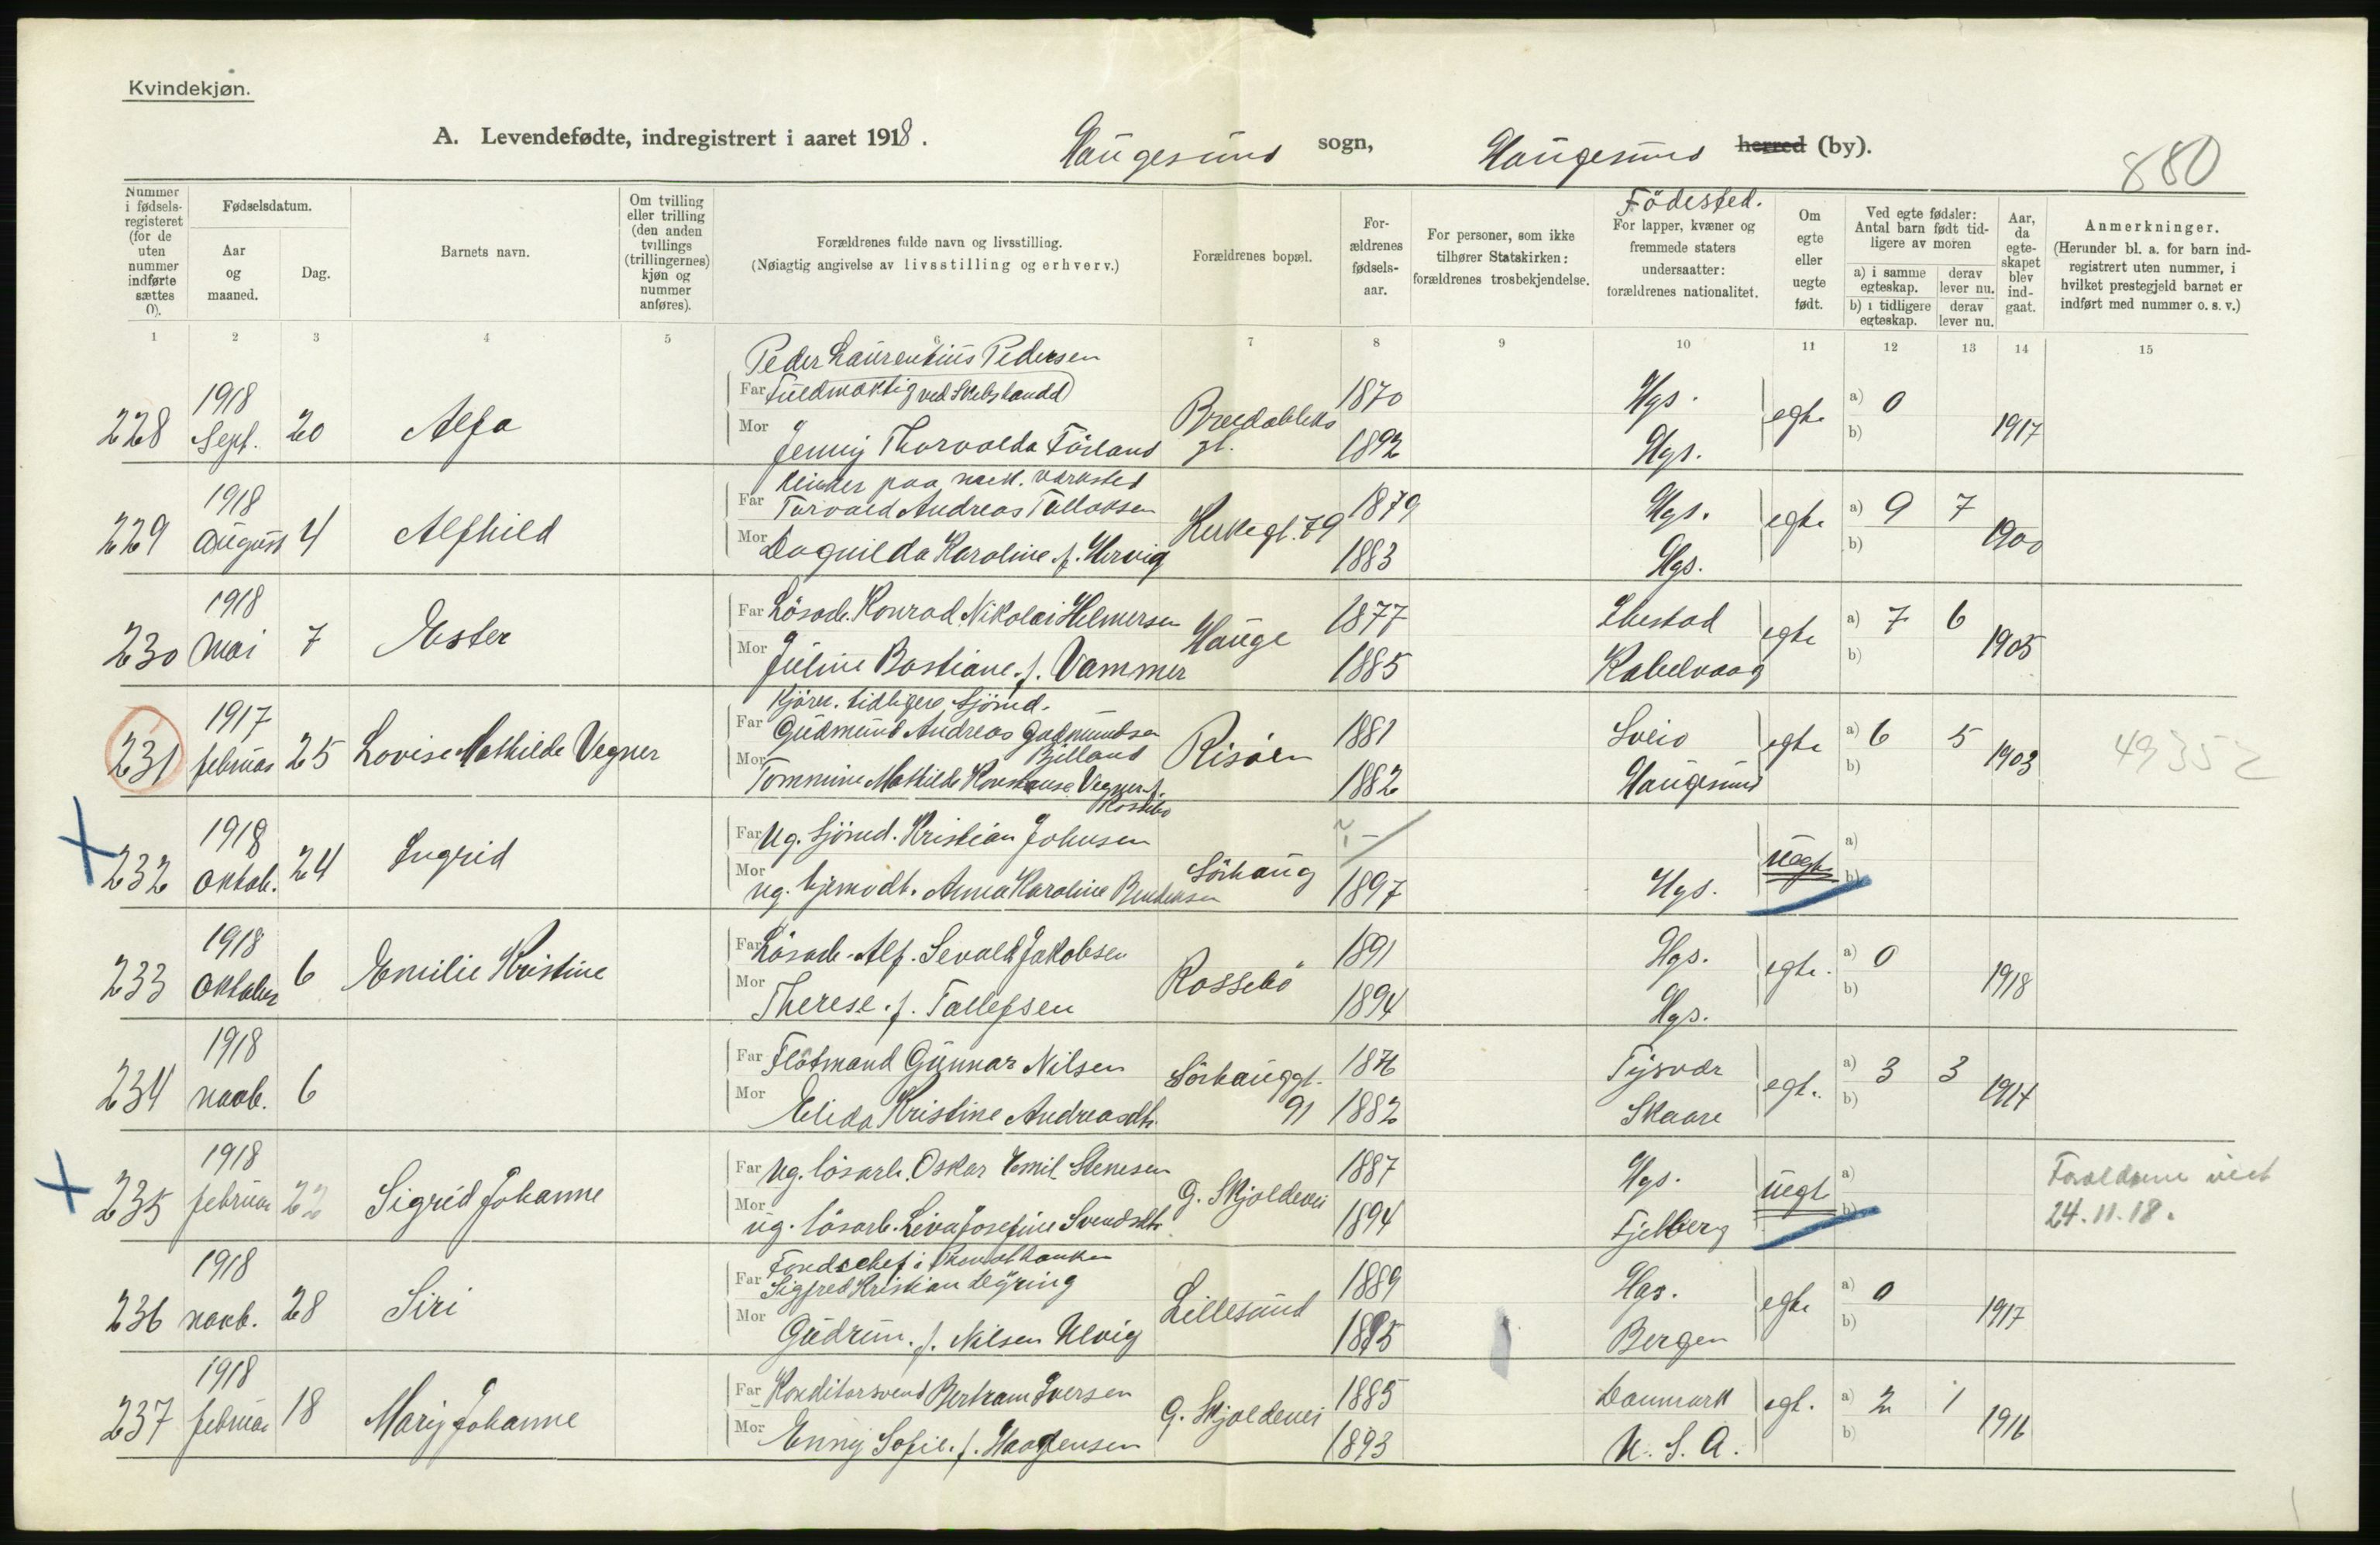 Kvindekjøn.
A. Levendefødte, indregistrert i aaret 1918.
Haugesund sogn, Haugesund herred (by).
880
Nummer i fødsels-registeret (for de uten nummer indførte sættes 0).
Fødselsdatum.
Aar og maaned.
Dag.
Barnets navn.
Om tvilling eller trilling (den anden tvillings (trillingernes) kjøn og nummer anføres).
Forældrenes fulde navn og livsstilling.
(Nøiagtig angivelse av livsstilling og erhverv.)
Forældrenes bopæl.
For-ældrenes fødsels-aar.
For personer, som ikke tilhører Statskirken: forældrenes trosbekjendelse.
Födested.
For lapper, kvæner og fremmede staters undersaatter: forældrenes nationalitet.
Om egte eller uegte født.
Ved egte fødsler: Antal barn født tid-ligere av moren
a) i samme egteskap.
derav lever nu.
b) i tidligere egteskap.
derav lever nu.
Aar, da egte-skapet blev ind-gaat.
Anmerkninger.
(Herunder bl. a. for barn ind-registrert uten nummer, i hvilket prestegjeld barnet er indført med nummer o. s. v.)
1 2 3 4 5 6 7 8 9 10 11 12 13 14 15
Peder Laurentius Pedersen
1918 Far 1870 Hgs. a) 0
228 Sept. 20 Alfa Mor Jenny Thorvalda Förland gt. 1892 Hgs. egte b) 1917
paa mek. verksted
1918 Far Torvald Andreas Tollaksen 1879 Hgs. a) 9 7
229 August 4 Alfhild Mor Dagnilda Karoline f. Hervig Kirkegt. 79 1883 Hgs. egte b) 1900
1918 Far Lösarb. Konrad Nikolai Helmersen 1877 Ibestad a) 7 6
230 Mai 7 Ester Mor Juline Bastiane f. Vammer Hauge 1885 Kabelvaag egte b) 1905
Kjörer. tidligere Sjömd.
1917 Far Gudmund Andreas Gudmundsen 1881 Sveio a) 6 5
Bjelland
231 februar 25 Lovise Mathilde Vegner Mor Tommine Mathilde Konstanse Vegner f. Risöen 1882 Haugesund egte b) 1903 49352
Rossebö
1918 Far Ug. Sjömd. Kristian Johnsen a)
232 Oktob. 24 Ingrid Mor ug. hjemvdt. Anna Karoline Bendiksen Sörhaug 1897 Hgs. uegte b)
1918 Far Lösarb. Alf. Sevald Jakobsen 1891 Hgs. a) 0
233 Oktober 6 Emilie Kristine Mor Therese f. Tollefsen Rossebö 1894 Hgs. egte. b) 1918
1918 Far Flötmand Gunnar Nilsen Sörhauggt. 1876 Tysvær a) 3 3
234 novb. 6 Mor Elida Kristine Andreasdtr. 91 1882 Skaare egt. b) 1914
1918 Far Ug. lösarb. Oskar Emil Stenesen 1887 Hgs. a) Forældrene viet
235 februar 22 Sigrid Johanne Mor ug. lösarb. Liva Josefine Svendsdtr. G. Skjoldevei 1894 Fjelberg uegt b) 24.11.18.
Fondschef i Privatbanken
1918 Far Sigfred Kristian Dyring 1889 Hgs. a) 0
236 novb. 28 Siri Mor Gudrun f. Nilsen Ulvig Lillesund 1895 Bergen egte b) 1917
1918 Far Konditorsvend Bertram Iversen 1885 Danmark a) 2 1
237 februar 18 Mary Johanne Mor Enny Sofie f. Haagensen G. Skjoldevei 1893 U. S. A. egt. b) 1916